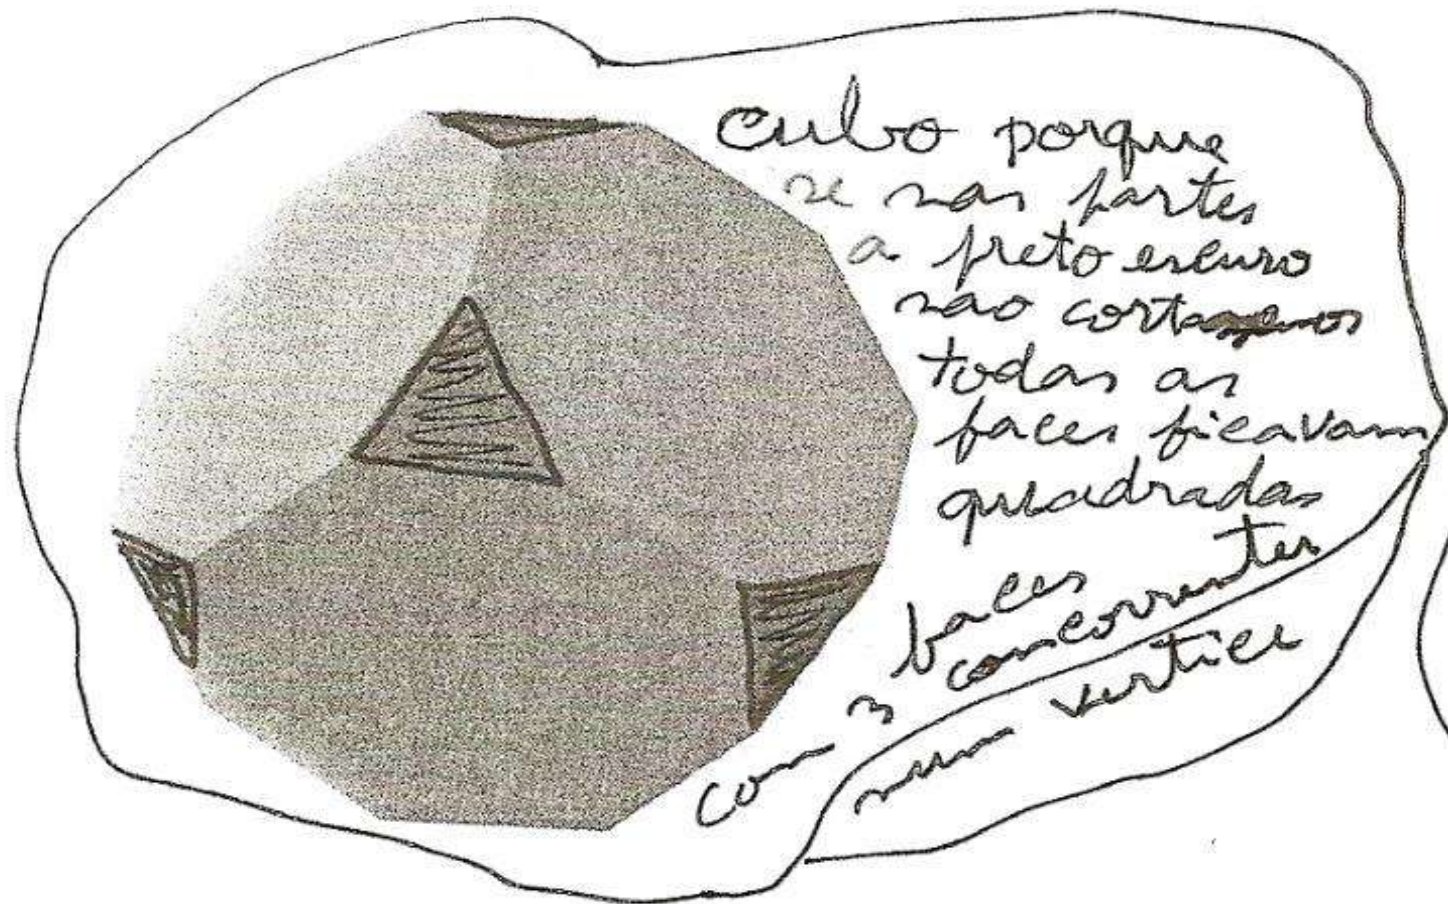 Cubo porque
se nas partes
a preto escuro
nao cortasemos
todas as
faces ficavam
quadradas
com 3 faces
concorrentes
num vertice